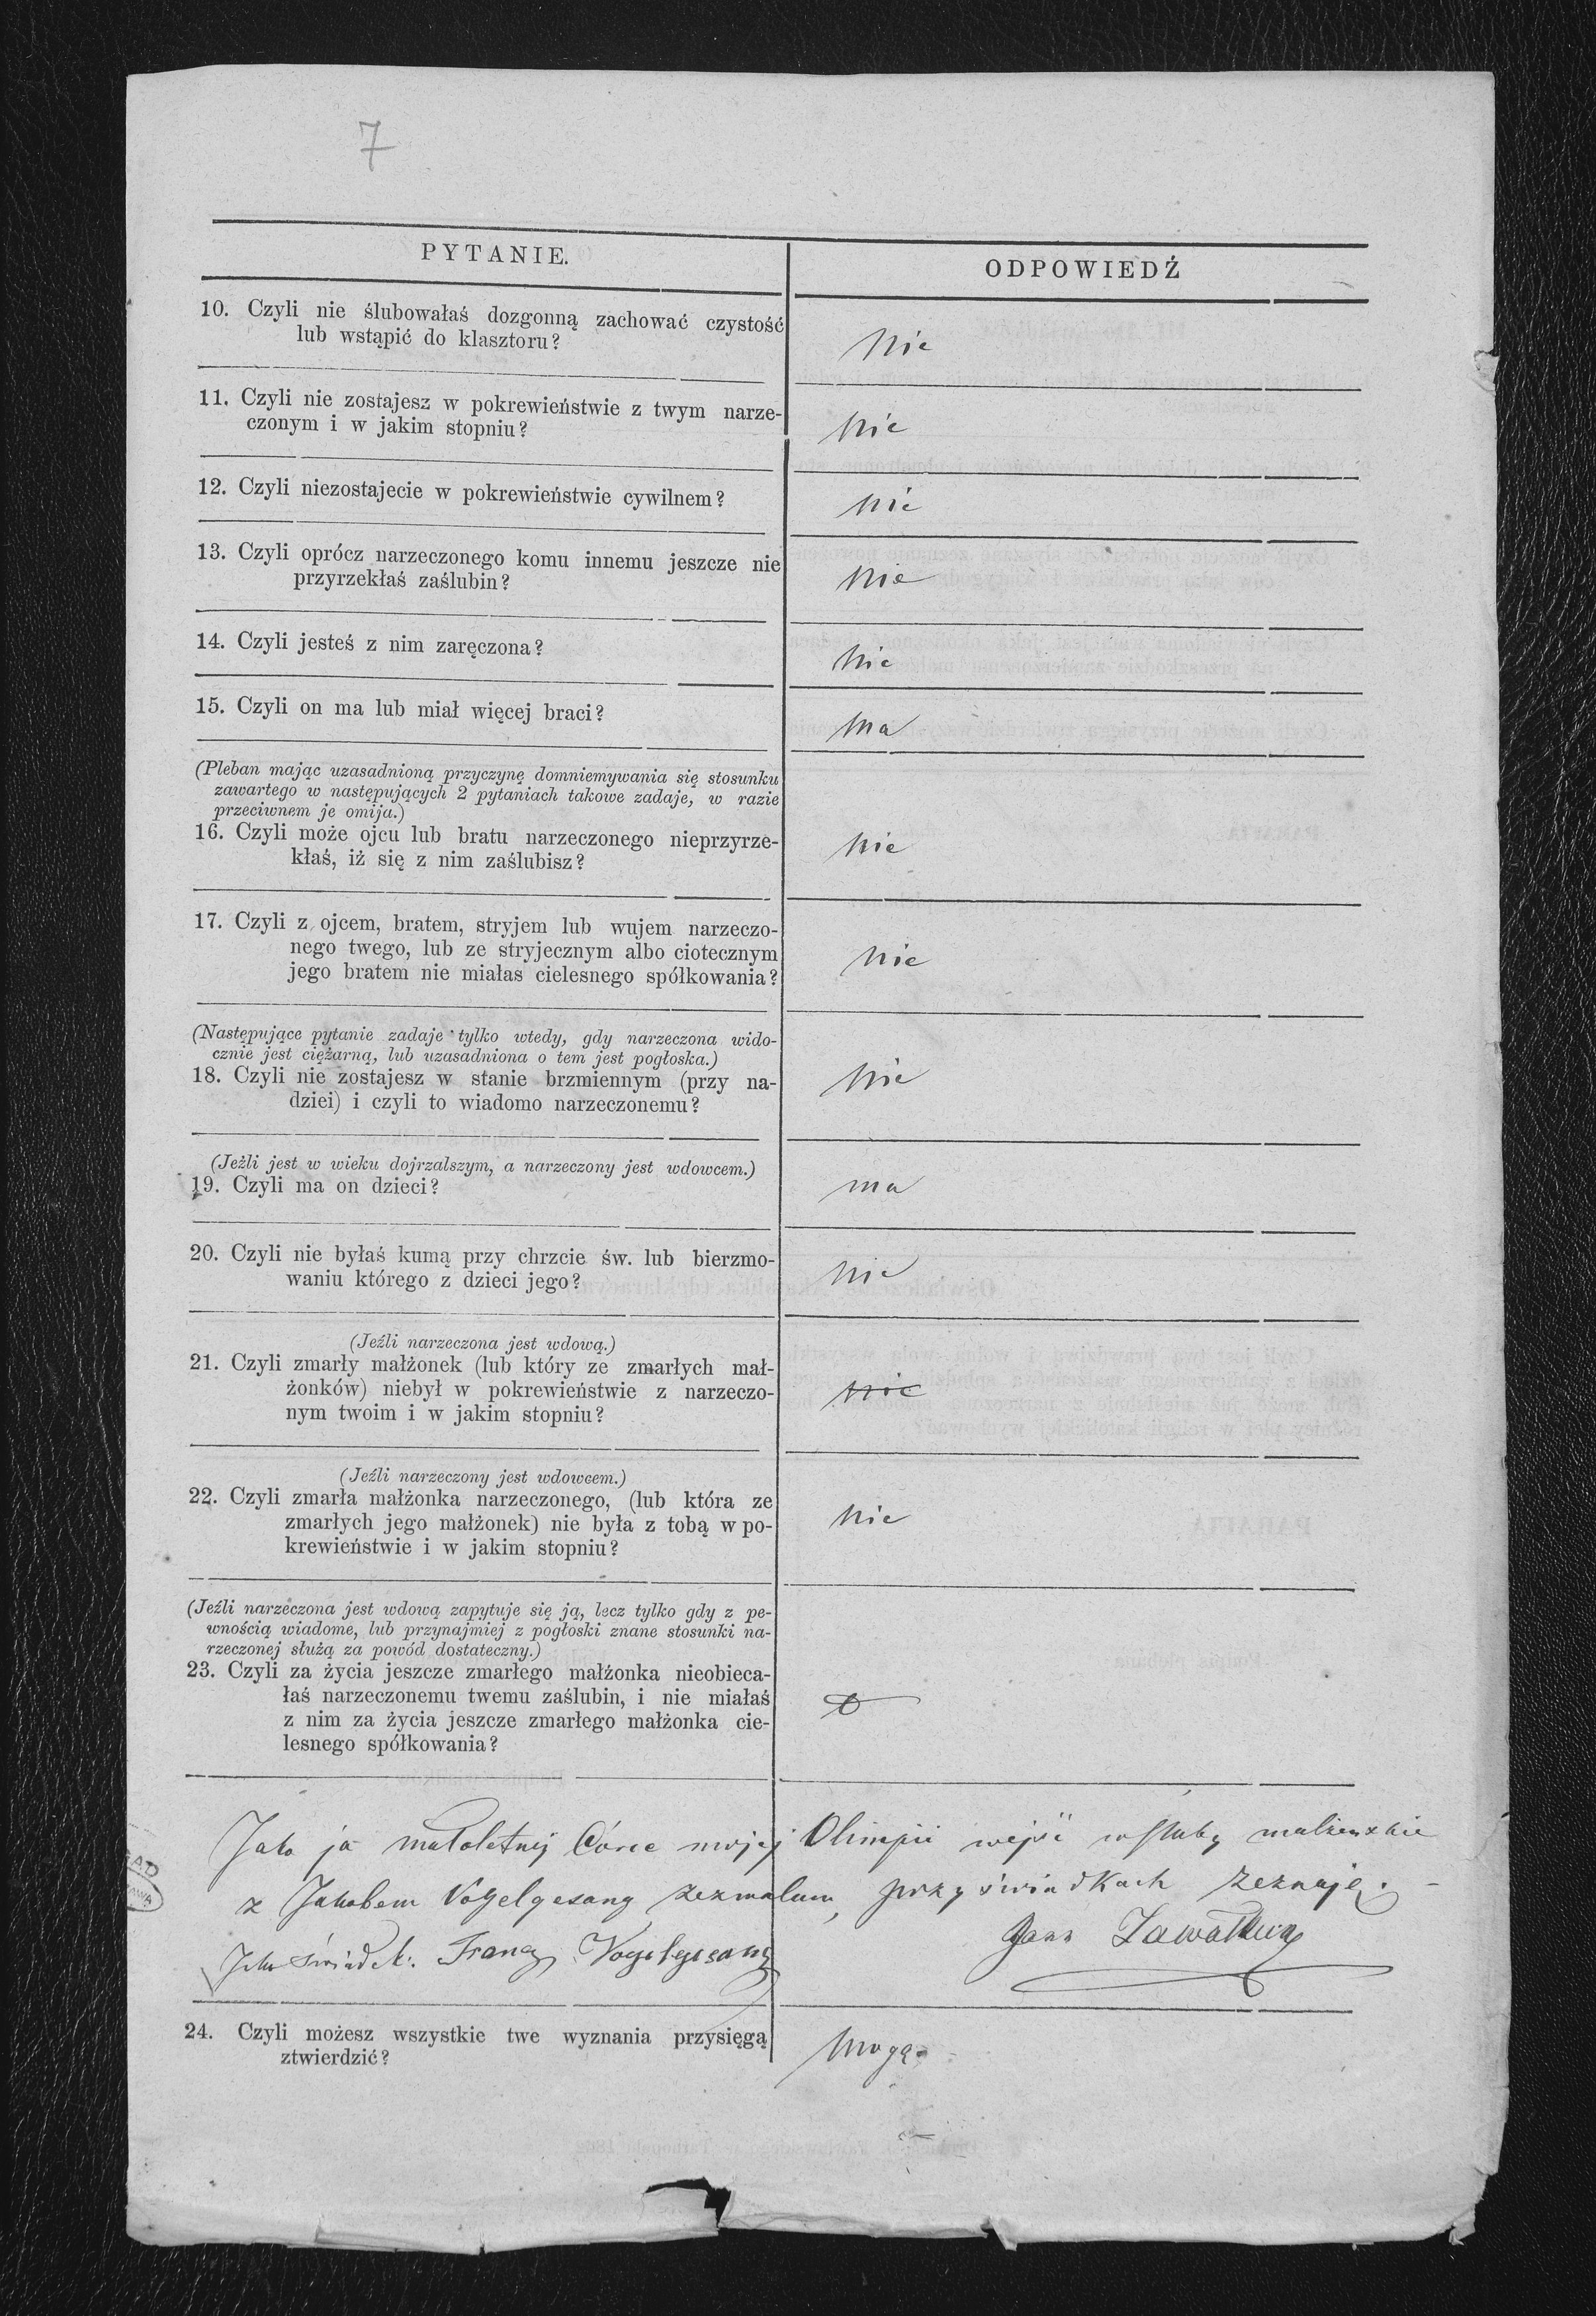 7
PYTANIE.
ODPOWIEDŹ
10. Czyli nie ślubowałaś dozgonną zachować czystość
lub wstąpić do klasztoru?
Nie
11. Czyli nie zostajesz w pokrewieństwie z twym narze-
czonym i w jakim stopniu?
Nie
12. Czyli niezostajecie w pokrewieństwie cywilnem?
nie
13. Czyli oprócz narzeczonego komu innemu jeszcze nie
przyrzekłaś zaślubin?
Nie
14. Czyli jesteś z nim zaręczona?
Nie
15. Czyli on ma lub miał więcej braci?
Ma
(Pleban mając uzasadnioną przyczynę domniemywania się stosunku
zawartego w następujących 2 pytaniach takowe zadaje, w razie
przeciwnem je omija.)
16. Czyli może ojcu lub bratu narzeczonego nieprzyrze-
kłaś, iż się z nim zaślubisz?
Nie
17. Czyli z ojcem, bratem, stryjem lub wujem narzeczo-
nego twego, lub ze stryjecznym albo ciotecznym
jego bratem nie miałas cielesnego spółkowania?
Nie
(Następujące pytanie zadaje tylko wtedy, gdy narzeczona wido-
cznie jest ciężarną, lub uzasadniona o tem jest pogłoska.)
18. Czyli nie zostajesz w stanie brzmiennym (przy na-
dziei) i czyli to wiadomo narzeczonemu?
Nie
(Jeżli jest w wieku dojrzalszym, a narzeczony jest wdowcem.)
19. Czyli ma on dzieci?
ma
20. Czyli nie byłaś kumą przy chrzcie św. lub bierzmo-
waniu którego z dzieci jego?
Nie
(Jeźli narzeczona jest wdową.)
21. Czyli zmarły małżonek (lub który ze zmarłych mał-
żonków) niebył w pokrewieństwie z narzeczo-
nym twoim i w jakim stopniu?
nie
(Jeźli narzeczony jest wdowcem.)
22. Czyli zmarła małżonka narzeczonego, (lub która ze
zmarłych jego małżonek) nie była z tobą w po-
krewieństwie i w jakim stopniu?
Nie
(Jeźli narzeczona jest wdową zapytuje się ją, lecz tylko gdy z pe-
wnością wiadome, lub przynajmiej z pogłoski znane stosunki na-
rzeczonej służą za powód dostateczny.)
23. Czyli za życia jeszcze zmarłego małżonka nieobieca-
łaś narzeczonemu twemu zaślubin, i nie miałaś
z nim za życia jeszcze zmarłego małżonka cie-
lesnego spółkowania?
0
Jako ja małoletnij Córce mojej Olimpii wejść w śluby małżenskie
z Jakobem Vogelgesang zezwalam, przy świadkach zeznaje.
Jan
Jako świadek: Vogelgesang
24. Czyli możesz wszystkie twe wyznania przysięgą
ztwierdzić?
Mogę